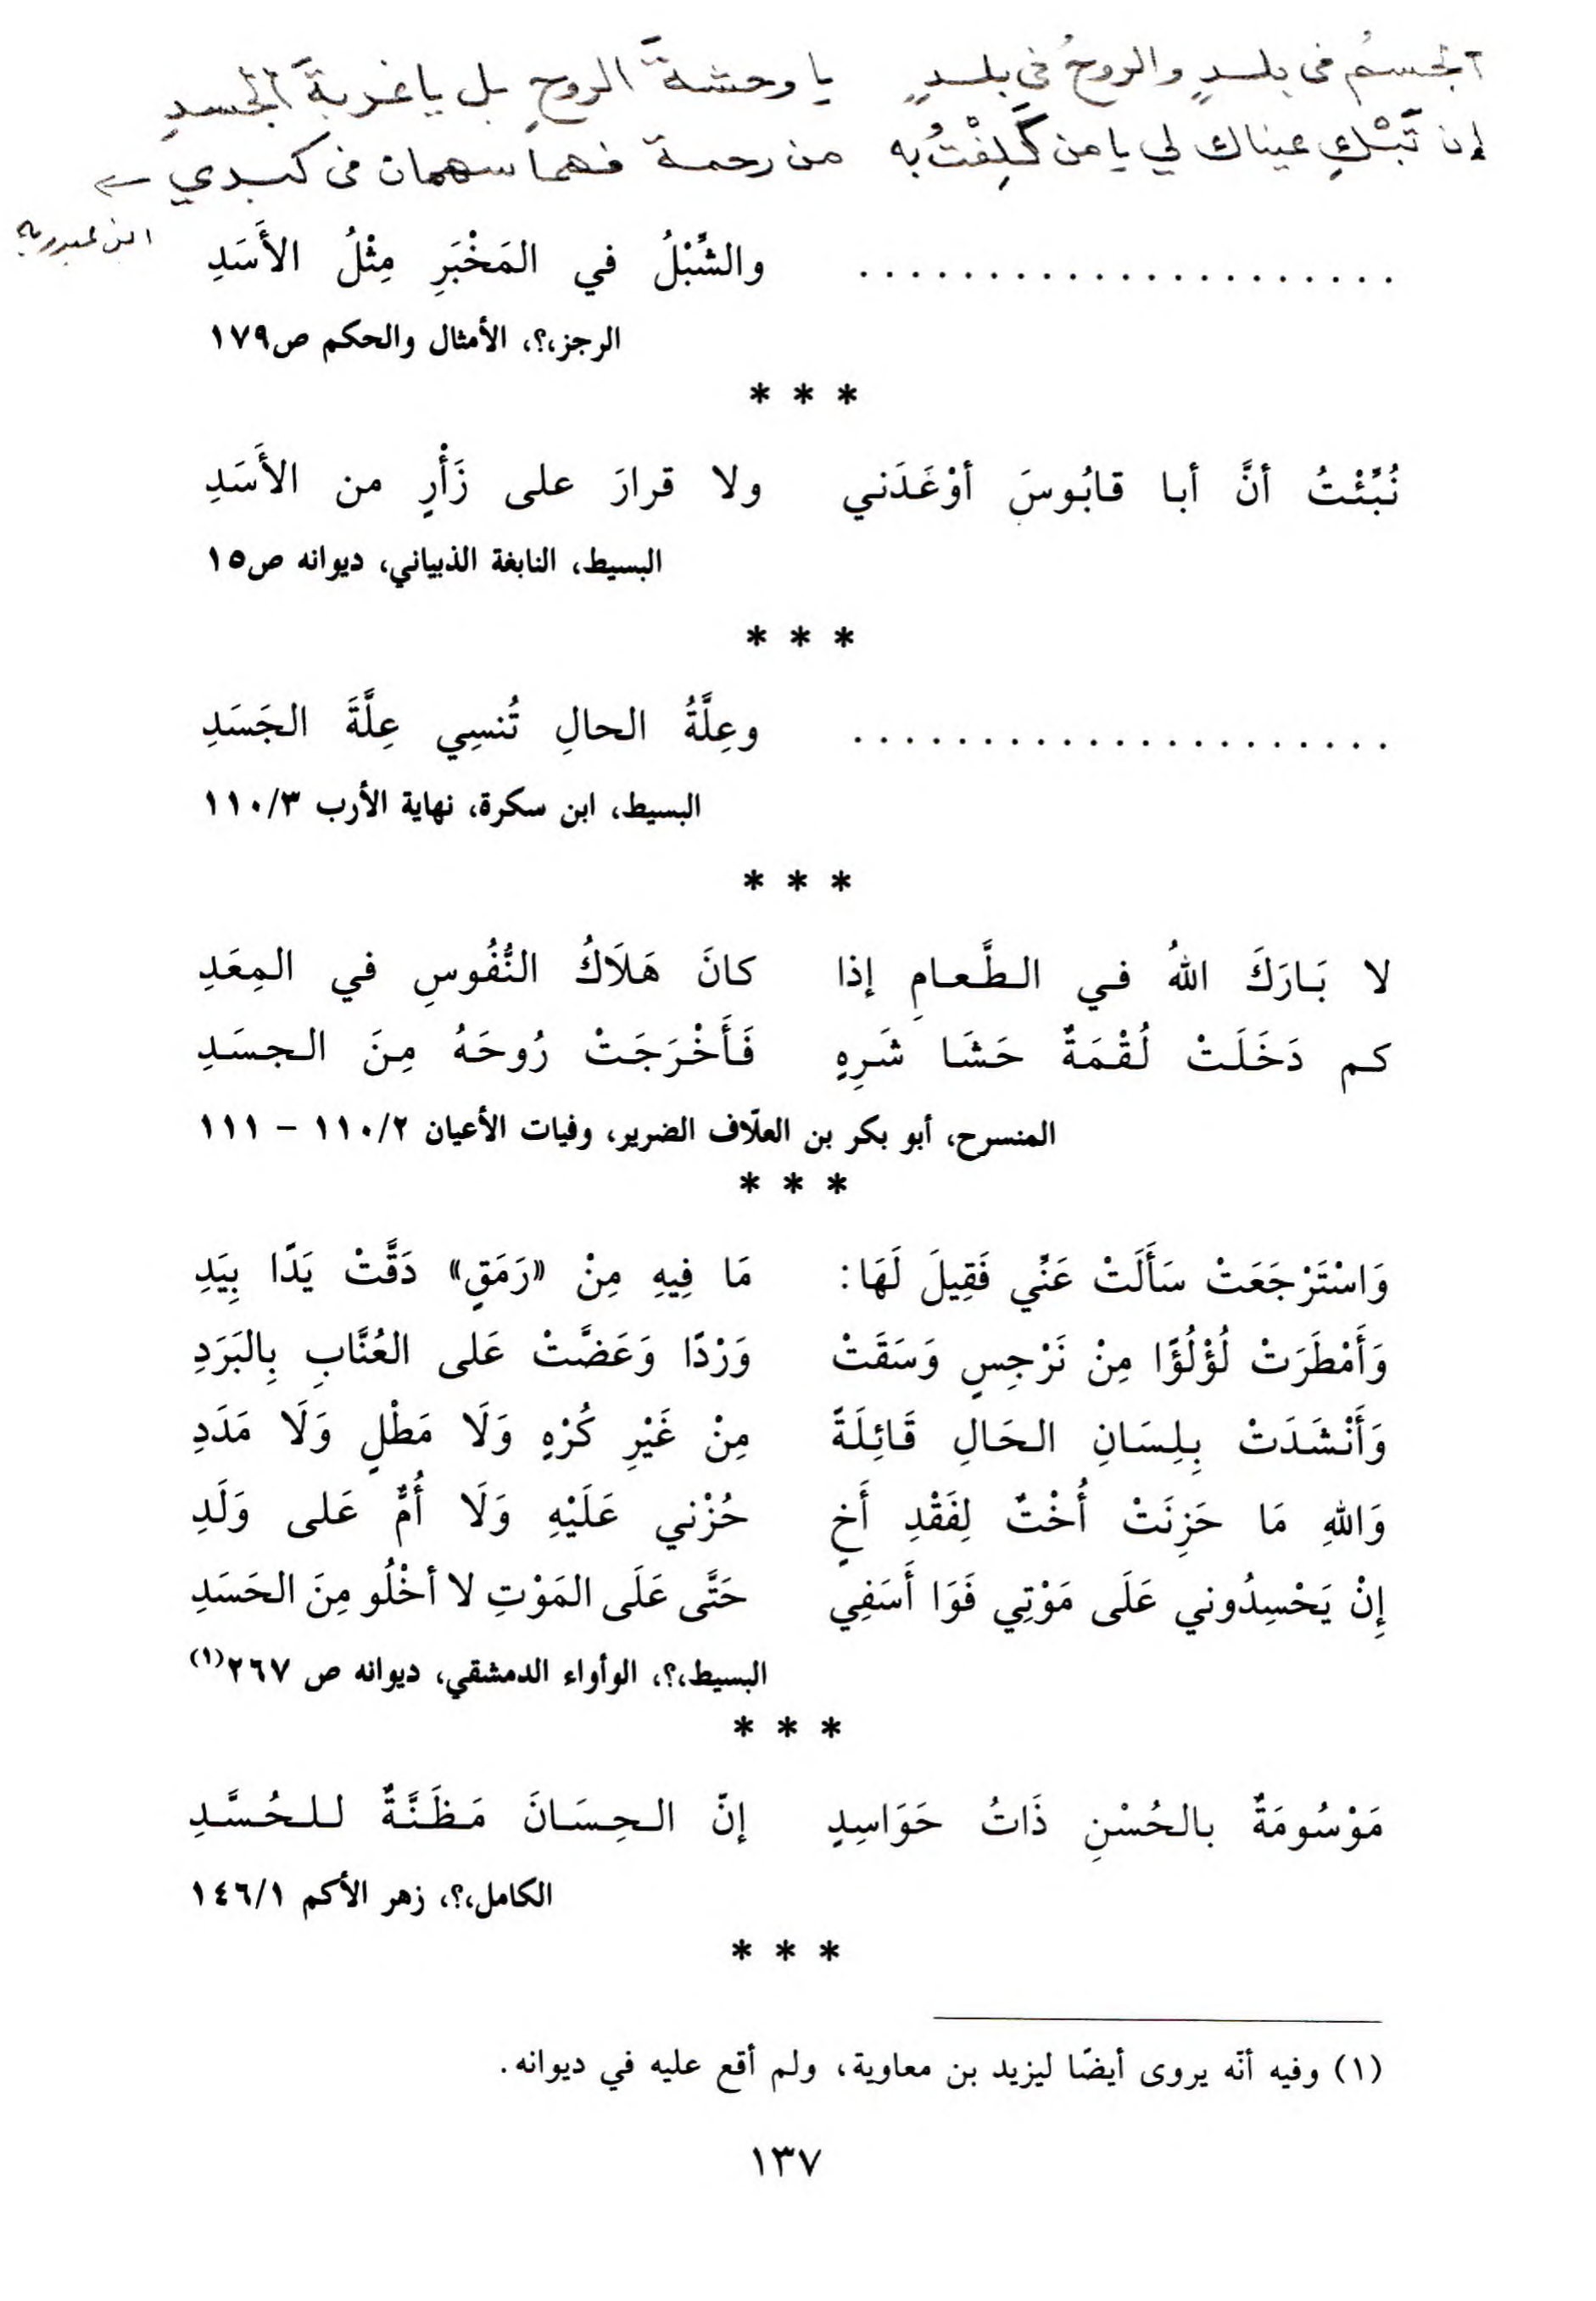 الجسمُ في بلدٍ والروحُ في بلدٍ يا وحشةَ الروحِ بل يا غربةَ الجسدِ
إن تَبْكِ عيناك لي يا من كَلِفْتُ به من رحمة فهما سهمان في كبدي ←
ابن عبد ربه
...................... والشِّبْلُ في المَخْبَرِ مِثْلُ الأَسَدِ
الرجز،؟، الأمثال والحكم ص١٧٩
* * *
نُبِّئْتُ أنَّ أبا قابُوسَ أوْعَدَني ولا قرارَ على زَأْرٍ من الأَسَدِ
البسيط، النابغة الذبياني، ديوانه ص١٥
* * *
..................... وعِلَّةُ الحالِ تُنسِي عِلَّةَ الجَسَدِ
البسيط، ابن سكرة، نهاية الأرب ١١٠/٣
* * *
لا بَارَكَ اللهُ في الطَّعامِ إذا كانَ هَلَاكُ النُّفُوسِ في المِعَدِ
كم دَخَلَتْ لُقْمَةٌ حَشَا شَرِهٍ فَأَخْرَجَتْ رُوحَهُ مِنَ الجسَدِ
المنسرح، أبو بكر بن العلّاف الضرير، وفيات الأعيان ١١٠/٢ – ١١١
* * *
وَاسْتَرْجَعَتْ سَأَلَتْ عَنِّي فَقِيلَ لَهَا: مَا فِيهِ مِنْ «رَمَقٍ» دَقَّتْ يَدًا بِيَدِ
وَأَمْطَرَتْ لُؤْلُؤًا مِنْ نَرْجِسٍ وَسَقَتْ وَرْدًا وَعَضَّتْ عَلى العُنَّابِ بِالبَرَدِ
وَأَنْشَدَتْ بِلِسَانِ الحَالِ قَائِلَةً مِنْ غَيْرِ كُرْهٍ وَلَا مَطْلٍ وَلَا مَدَدِ
وَاللهِ مَا حَزِنَتْ أُخْتٌ لِفَقْدِ أَخٍ حُزْني عَلَيْهِ وَلَا أُمٌّ عَلى وَلَدِ
إِنْ يَحْسِدُوني عَلَى مَوْتِي فَوَا أَسَفِي حَتَّى عَلَى المَوْتِ لا أخْلُو مِنَ الحَسَدِ
البسيط،؟، الوأواء الدمشقي، ديوانه ص ٢٦٧(١)
* * *
مَوْسُومَةٌ بالحُسْنِ ذَاتُ حَوَاسِدٍ إنّ الحِسَانَ مَظَنَّةٌ للحُسَّدِ
الكامل،؟، زهر الأكم ١٤٦/١
* * *
(١) وفيه أنّه يروى أيضًا ليزيد بن معاوية، ولم أقع عليه في ديوانه.
١٣٧